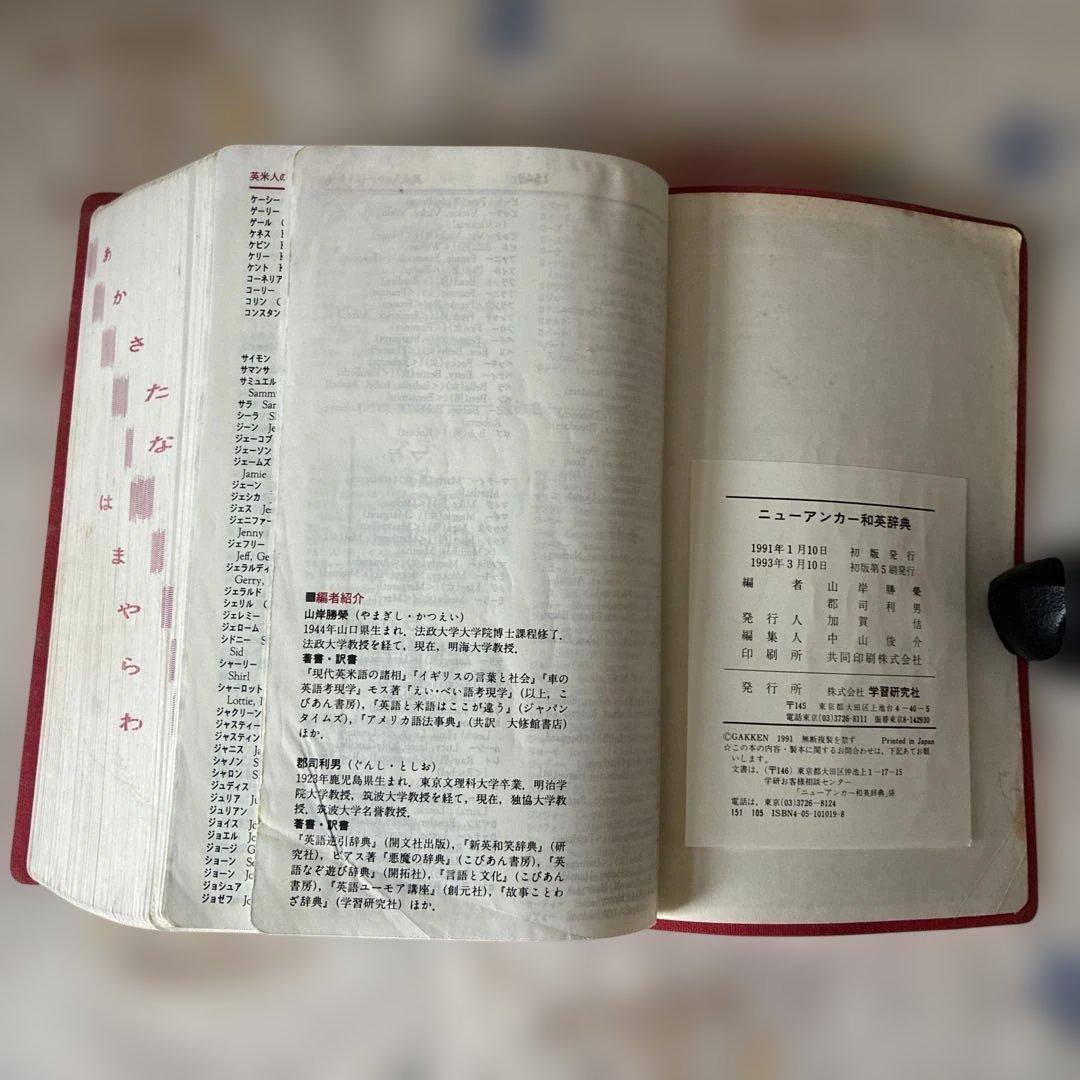 あ
か
さ
た
な
は
ま
や
ら
わ
英米人の
ケーシー
ゲーリー
ゲール
ケネス
ケビン
ケリー
ケント
コーネリア
コーリー
コリン
コンスタン
サイモン
サマンサ
サミュエル
Samm
サラ Sar
シーラ
ジーン Je
ジェーコブ
ジェーソン
ジェームズ
Jamie
ジェーン
ジェシカ
ジェス Je
ジェニファー
Jenny
ジェフリー
Jeff, Ge
ジェラルディ
Gerry,
ジェラルド
シェリル
ジェレミー
ジェローム
シドニー
Sid
シャーリー
Shirl
シャーロット
Lottie,
ジャクリーン
ジャスティー
ジャスティン
ジャニス Ja
シャノン
シャロン
ジュディス
ジュリア Ju
ジュリアン
ジョイス
ジョエル
ジョージ G
ショーン
ジョーン
ジョシュア
ジョゼフ
■編者紹介
山岸勝榮(やまぎし・かつえい)
1944年山口県生まれ.法政大学大学院博士課程修了.
法政大学教授を経て,現在,明海大学教授.
著書・訳書
『現代英米語の諸相』『イギリスの言葉と社会』『車の
英語考現学』モス著『えい・べい語考現学』(以上,こ
びあん書房),『英語と米語はここが違う』(ジャパン
タイムズ),『アメリカ語法事典』(共訳 大修館書店)
ほか.
郡司利男(ぐんし・としお)
1923年鹿児島県生まれ.東京文理科大学卒業.明治学
院大学教授,筑波大学教授を経て,現在,独協大学教
授,筑波大学名誉教授.
著書・訳書
『英語逆引辞典』(開文社出版),『新英和笑辞典』(研
究社),ビアス著『悪魔の辞典』(こびあん書房),『英
語なぞ遊び辞典』(開拓社),『言語と文化』(こびあん
書房),『英語ユーモア講座』(創元社),『故事ことわ
ざ辞典』(学習研究社)ほか.
ニューアンカー和英辞典
1991年1月10日 初版発行
1993年3月10日 初版第5刷発行
編者 山岸勝榮
郡司利男
発行人 加賀 佶
編集人 中山俊介
印刷所 共同印刷株式会社
発行所 株式会社 学習研究社
〒145 東京都大田区上池台4-40-5
電話東京(03)3726-8111 振替東京8-142930
©GAKKEN 1991 無断複製を禁ず Printed in Japan
☆この本の内容・製本に関するお問合わせは,下記あてお願
いします.
文書は,(〒146)東京都大田区仲池上1-17-15
学研お客様相談センター
「ニューアンカー和英辞典」係
電話は,東京(03)3726-8124
151 105 ISBN4-05-101019-8